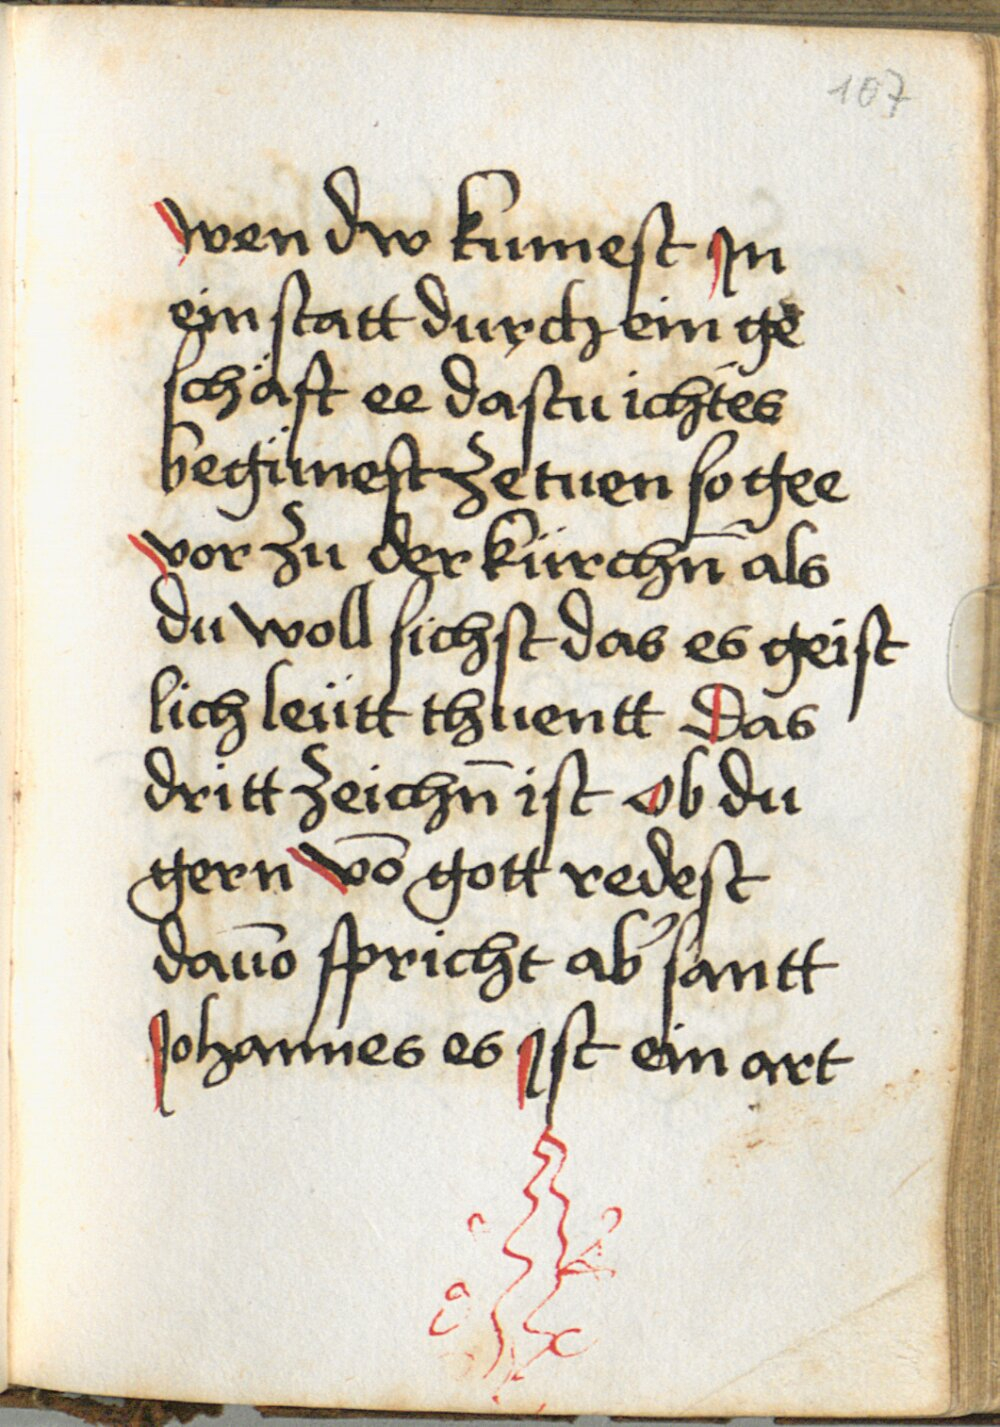 107
wen dw kumest In
ein statt durch ein ge
schäft ee dastu ichtes
begünest ze tuen so gee
vor zu der kürchn̄ als
du woll sichst das es geist
lich leütt thuentt Das
dritt zeichn̄ ist Ob du
gern vō gott redest
dauō spricht ab' santt
Johannes es Ist ein art